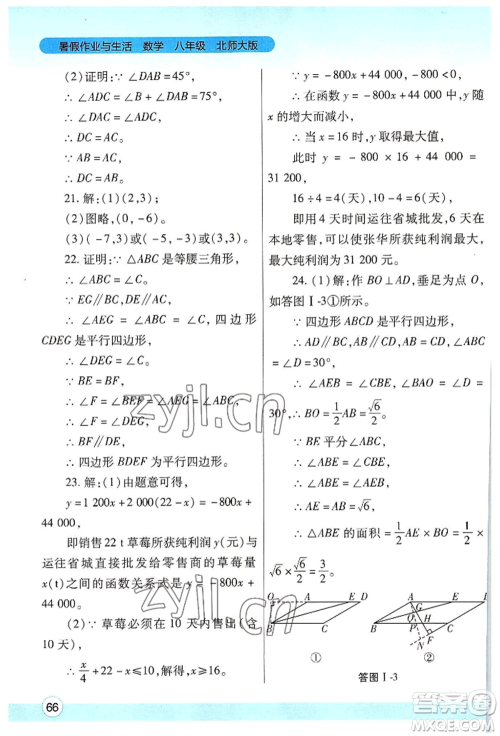 暑假作业与生活　数学　八年级　北师大版
(2)证明:∵∠DAB=45°,
∴∠ADC=∠B+∠DAB=75°,
∴∠DAC=∠ADC,
∴DC=AC.
∵AB=AC,
∴DC=AB.
21.解:(1)(2,3);
(2)图略,(0,-6).
(3)(-7,3)或(-5,-3)或(3,3).
22.证明:∵△ABC是等腰三角形,
∴∠ABC=∠C.
∵EG∥BC,DE∥AC,
∴∠AEG=∠ABC=∠C,四边形
CDEG是平行四边形,
∴∠DEG=∠C.
∵BE=BF,
∴∠F=∠BEF=∠AEG=∠ABC,
∴∠F=∠DEG,
∴BF∥DE,
∴四边形BDEF为平行四边形.
23.解:(1)由题意可得:
y=1 200x+2 000(22-x)=-800x+
44 000,
即销售22 t草莓所获纯利润y(元)与
运往省城直接批发给零售商的草莓量
x(t)之间的函数关系式是y=-800x+
44 000.
(2)∵草莓必须在10天内售出(含
10天),
∴x/4+22-x≤10,解得x≥16.
∵y=-800x+44 000,-800<0,
∴在函数y=-800x+44 000中,y随
x的增大而减小,
∴当x=16时,y取得最大值,
此时,y=-800×16+44 000=
31 200,
16÷4=4(天),10-4=6(天),
即用4天时间运往省城批发,6天在
本地零售,可以使张华所获纯利润最大,
最大纯利润为31 200元.
24.(1)解:作BO⊥AD,垂足为点O,
如答图Ⅰ-3①所示.
∵四边形ABCD是平行四边形,
∴AD∥BC,AB∥CD,AB=CD,
∠ABC=∠D=30°,
∴∠AEB=∠CBE,∠BAO=∠D=
30°,∴BO=1/2AB=√6/2.
∵BE平分∠ABC,
∴∠ABE=∠CBE,
∴∠ABE=∠AEB,
∴AE=AB=√6,
∴△ABE的面积=1/2AE·BO=1/2×
√6×√6/2=3/2.
O A E D
B C
①
A E D
G
P H
B C
N F
②
答图Ⅰ-3
66
zyjl.cn
zyjl.cn